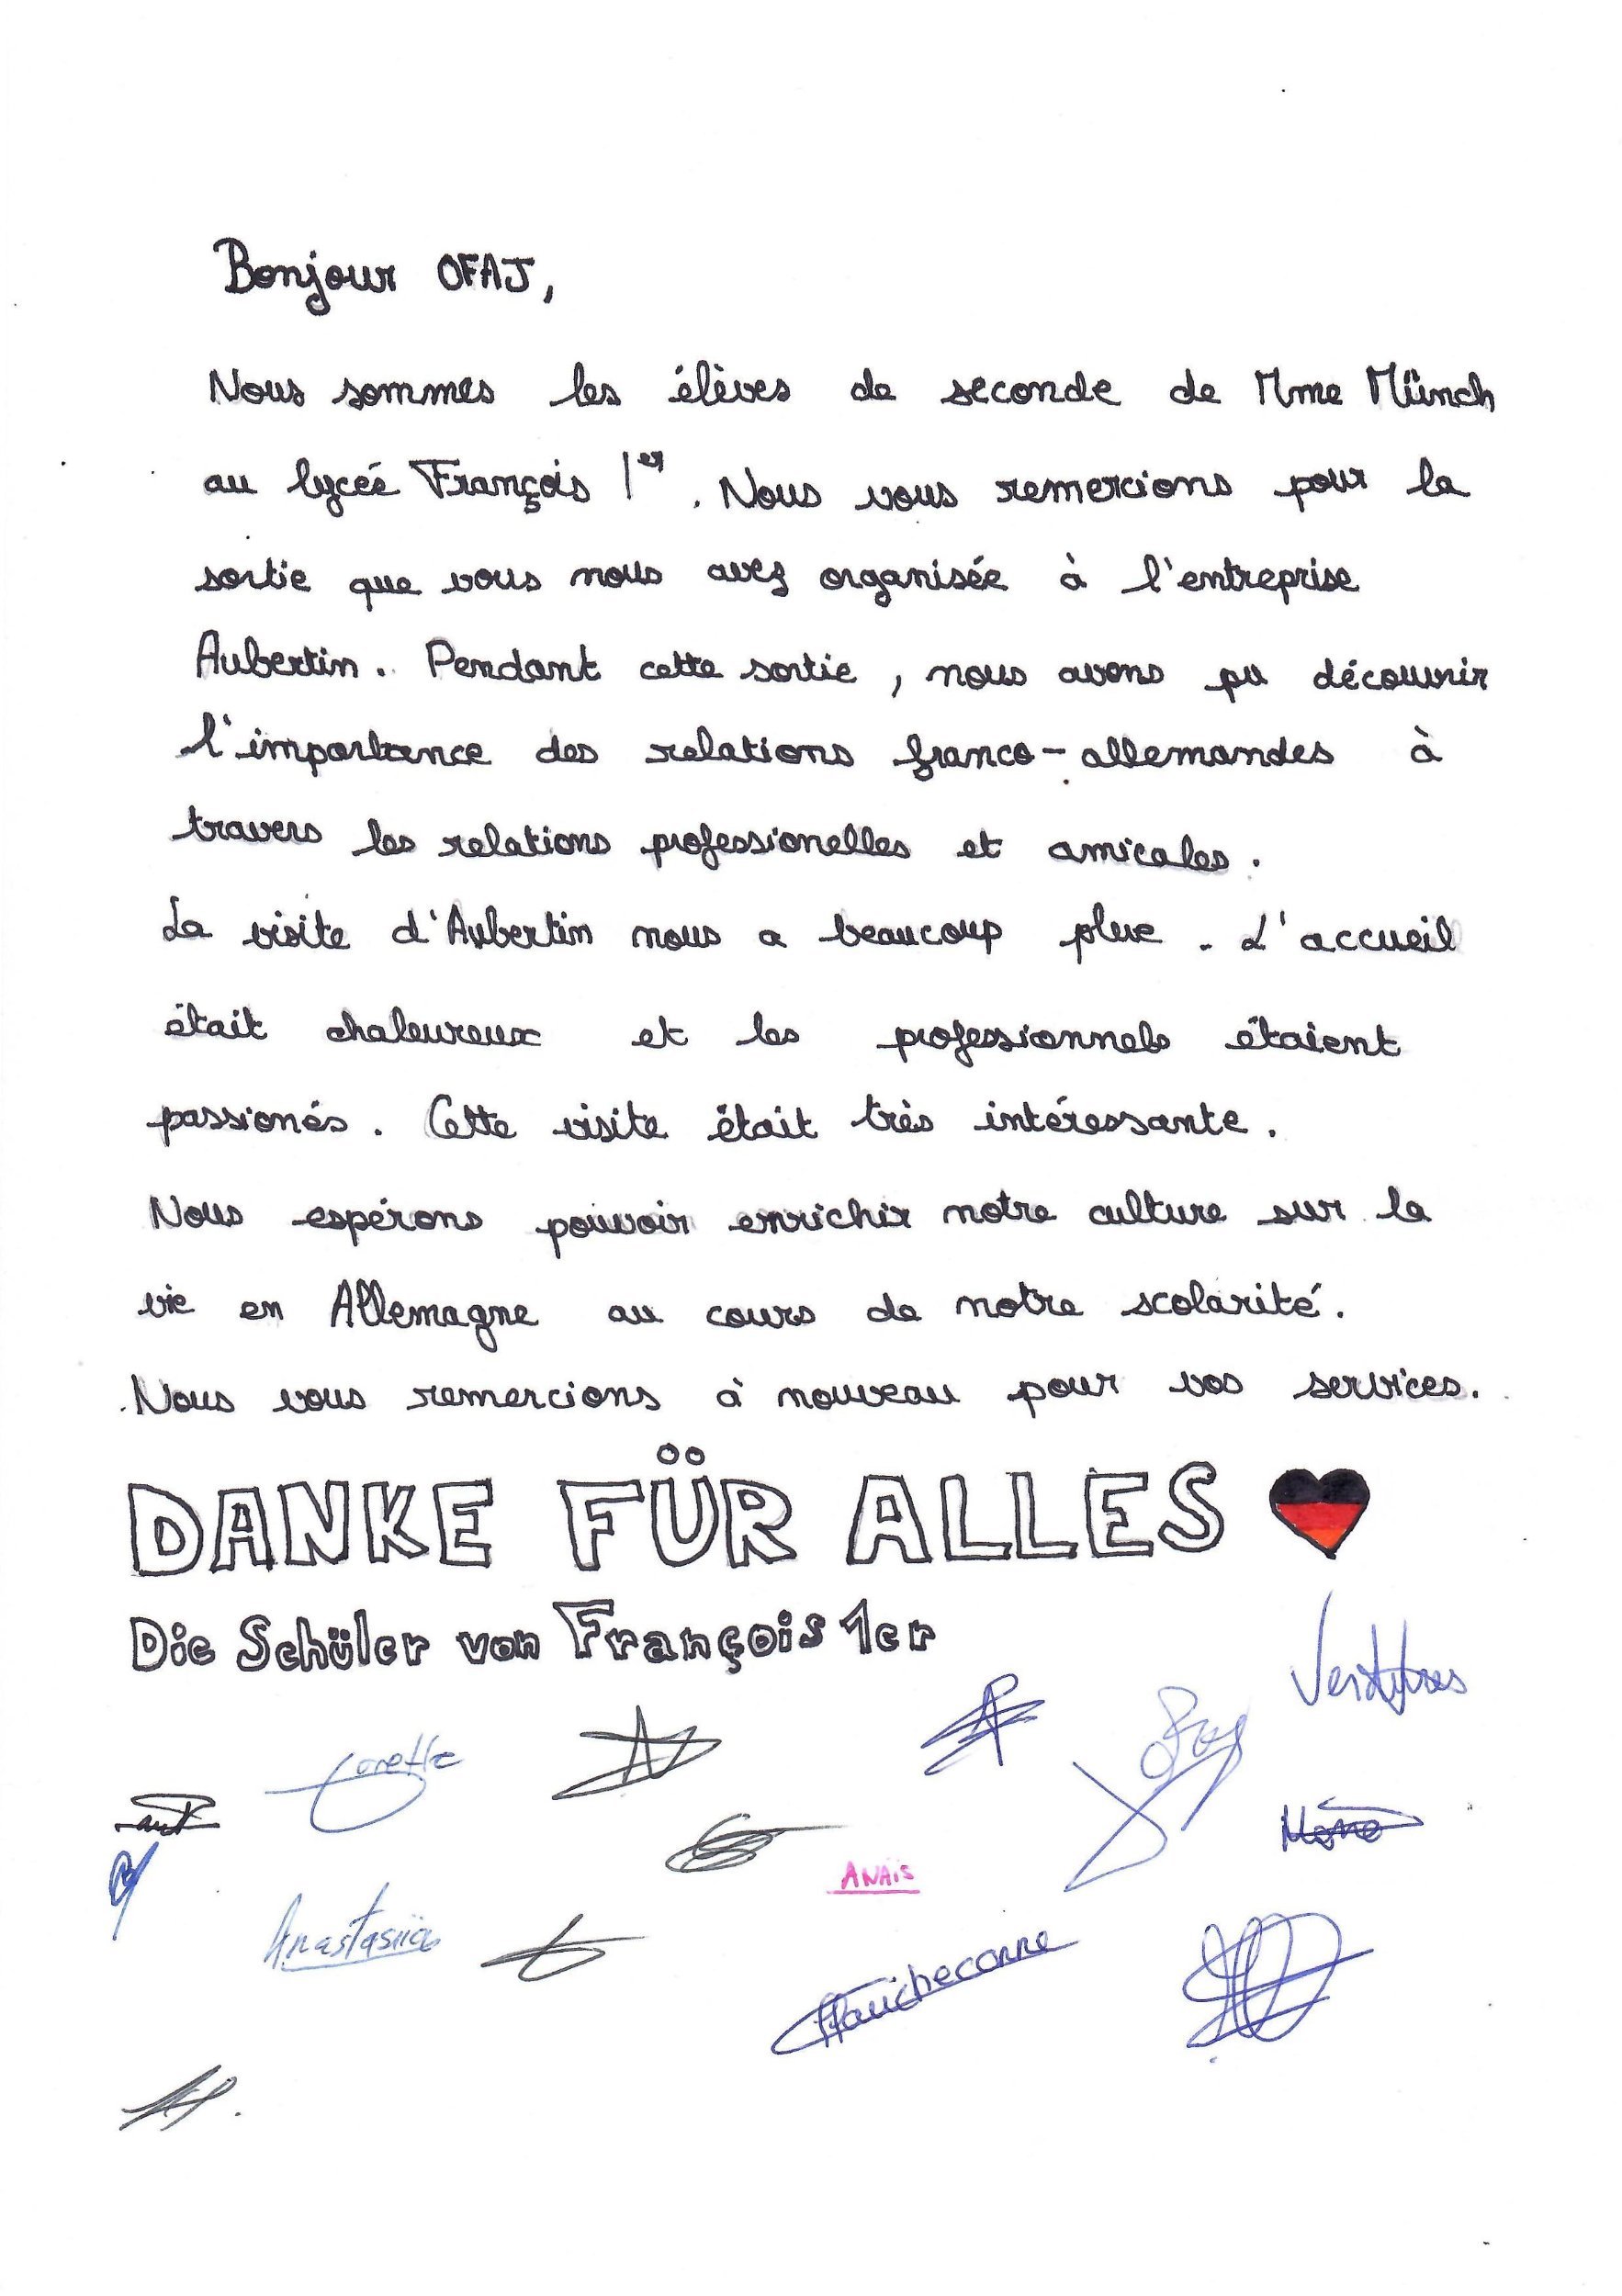 Bonjour OFAJ,
Nous sommes les élèves de seconde de Mme Münch
au lycéé François 1er. Nous vous remercions pour la
sortie que vous nous avez organisée à l'entreprise
Aubertin. Pendant cette sortie, nous avons pu découvrir
l'importance des relations franco-allemandes à
travers les relations professionelles et amicales.
La visite d'Aubertin nous a beaucoup plue. L'accueil
était chaleureux et les professionnels étaient
passionés. Cette visite était très intéressante.
Nous espérons pouvoir enrichir notre culture sur la
vie en Allemagne au cours de notre scolarité.
Nous vous remercions à nouveau pour vos services.
DANKE FÜR ALLES
Die Schüler von François 1er
ANAïS
Anastasiia